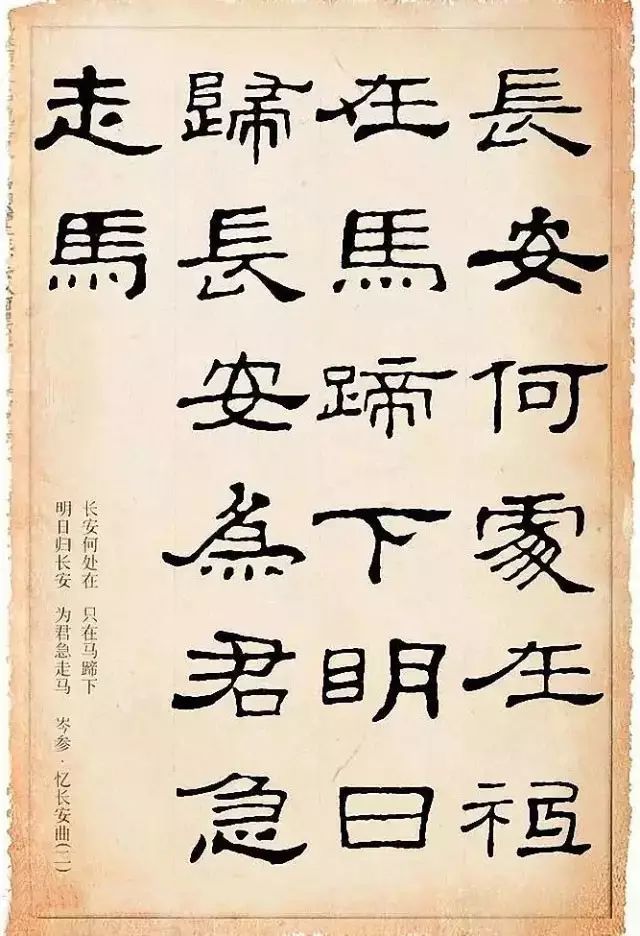 長安何處在祇
在馬蹄下明日
歸長安為君急
走馬
长安何处在 只在马蹄下
明日归长安 为君急走马 岑参·忆长安曲(二)